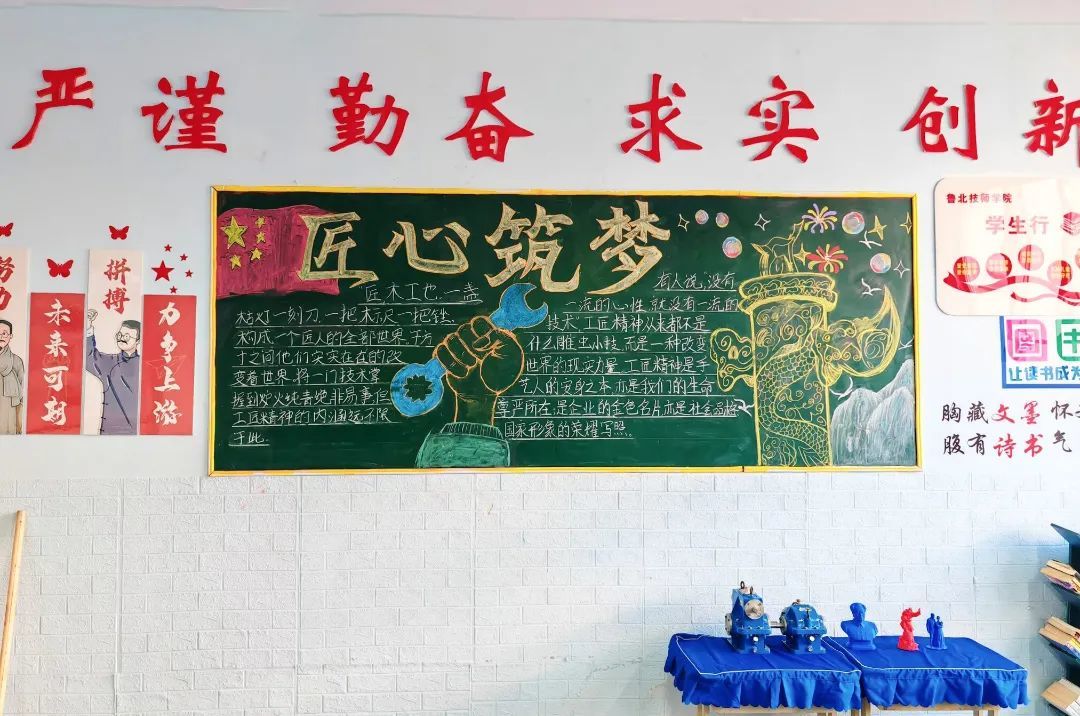 严谨 勤奋 求实 创新
努力
未来可期
拼搏
力争上游
匠心筑梦
匠木工也.一盏
枯灯一刻刀.一把标尺一把锉.
构成一个匠人的全部世界.于方
寸之间他们实实在在的改
变着世界.将一门技术掌
握到炉火纯青绝非易事但
工匠精神的内涵远不限
于此.
有人说,没有
一流的心性,就没有一流的
技术,工匠精神从来都不是
什么雕虫小技,而是一种改变
世界的现实力量.工匠精神是手
艺人的安身之本,亦是我们的生命
尊严所在;是企业的金色名片,亦是社会品格
国家形象的荣耀写照。
鲁北技师学院
学生行
让读书成为
胸藏文墨怀
腹有诗书气